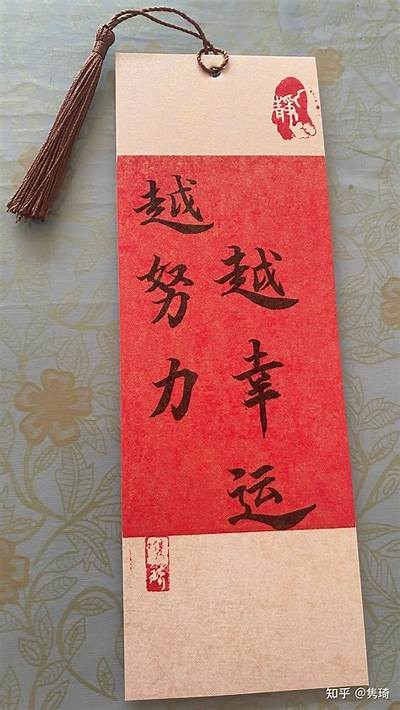 越努力
越幸运
知乎 @隽琦